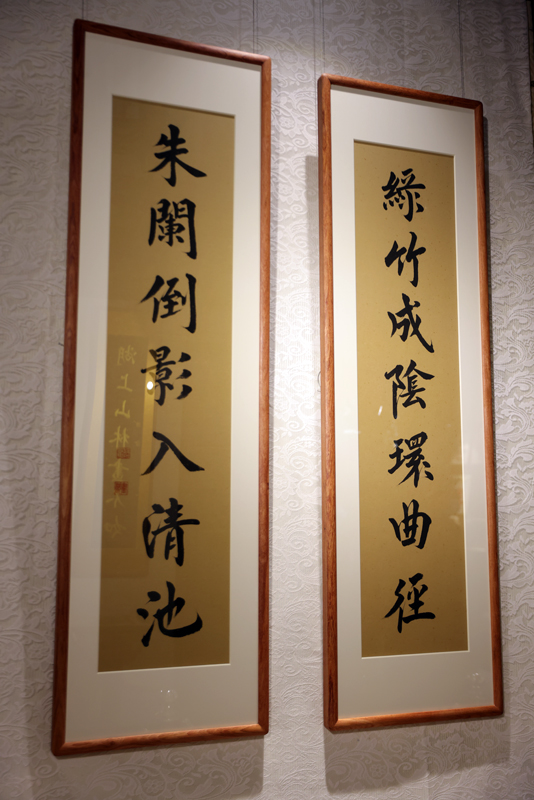 綠竹成陰環曲徑
朱闌倒影入清池